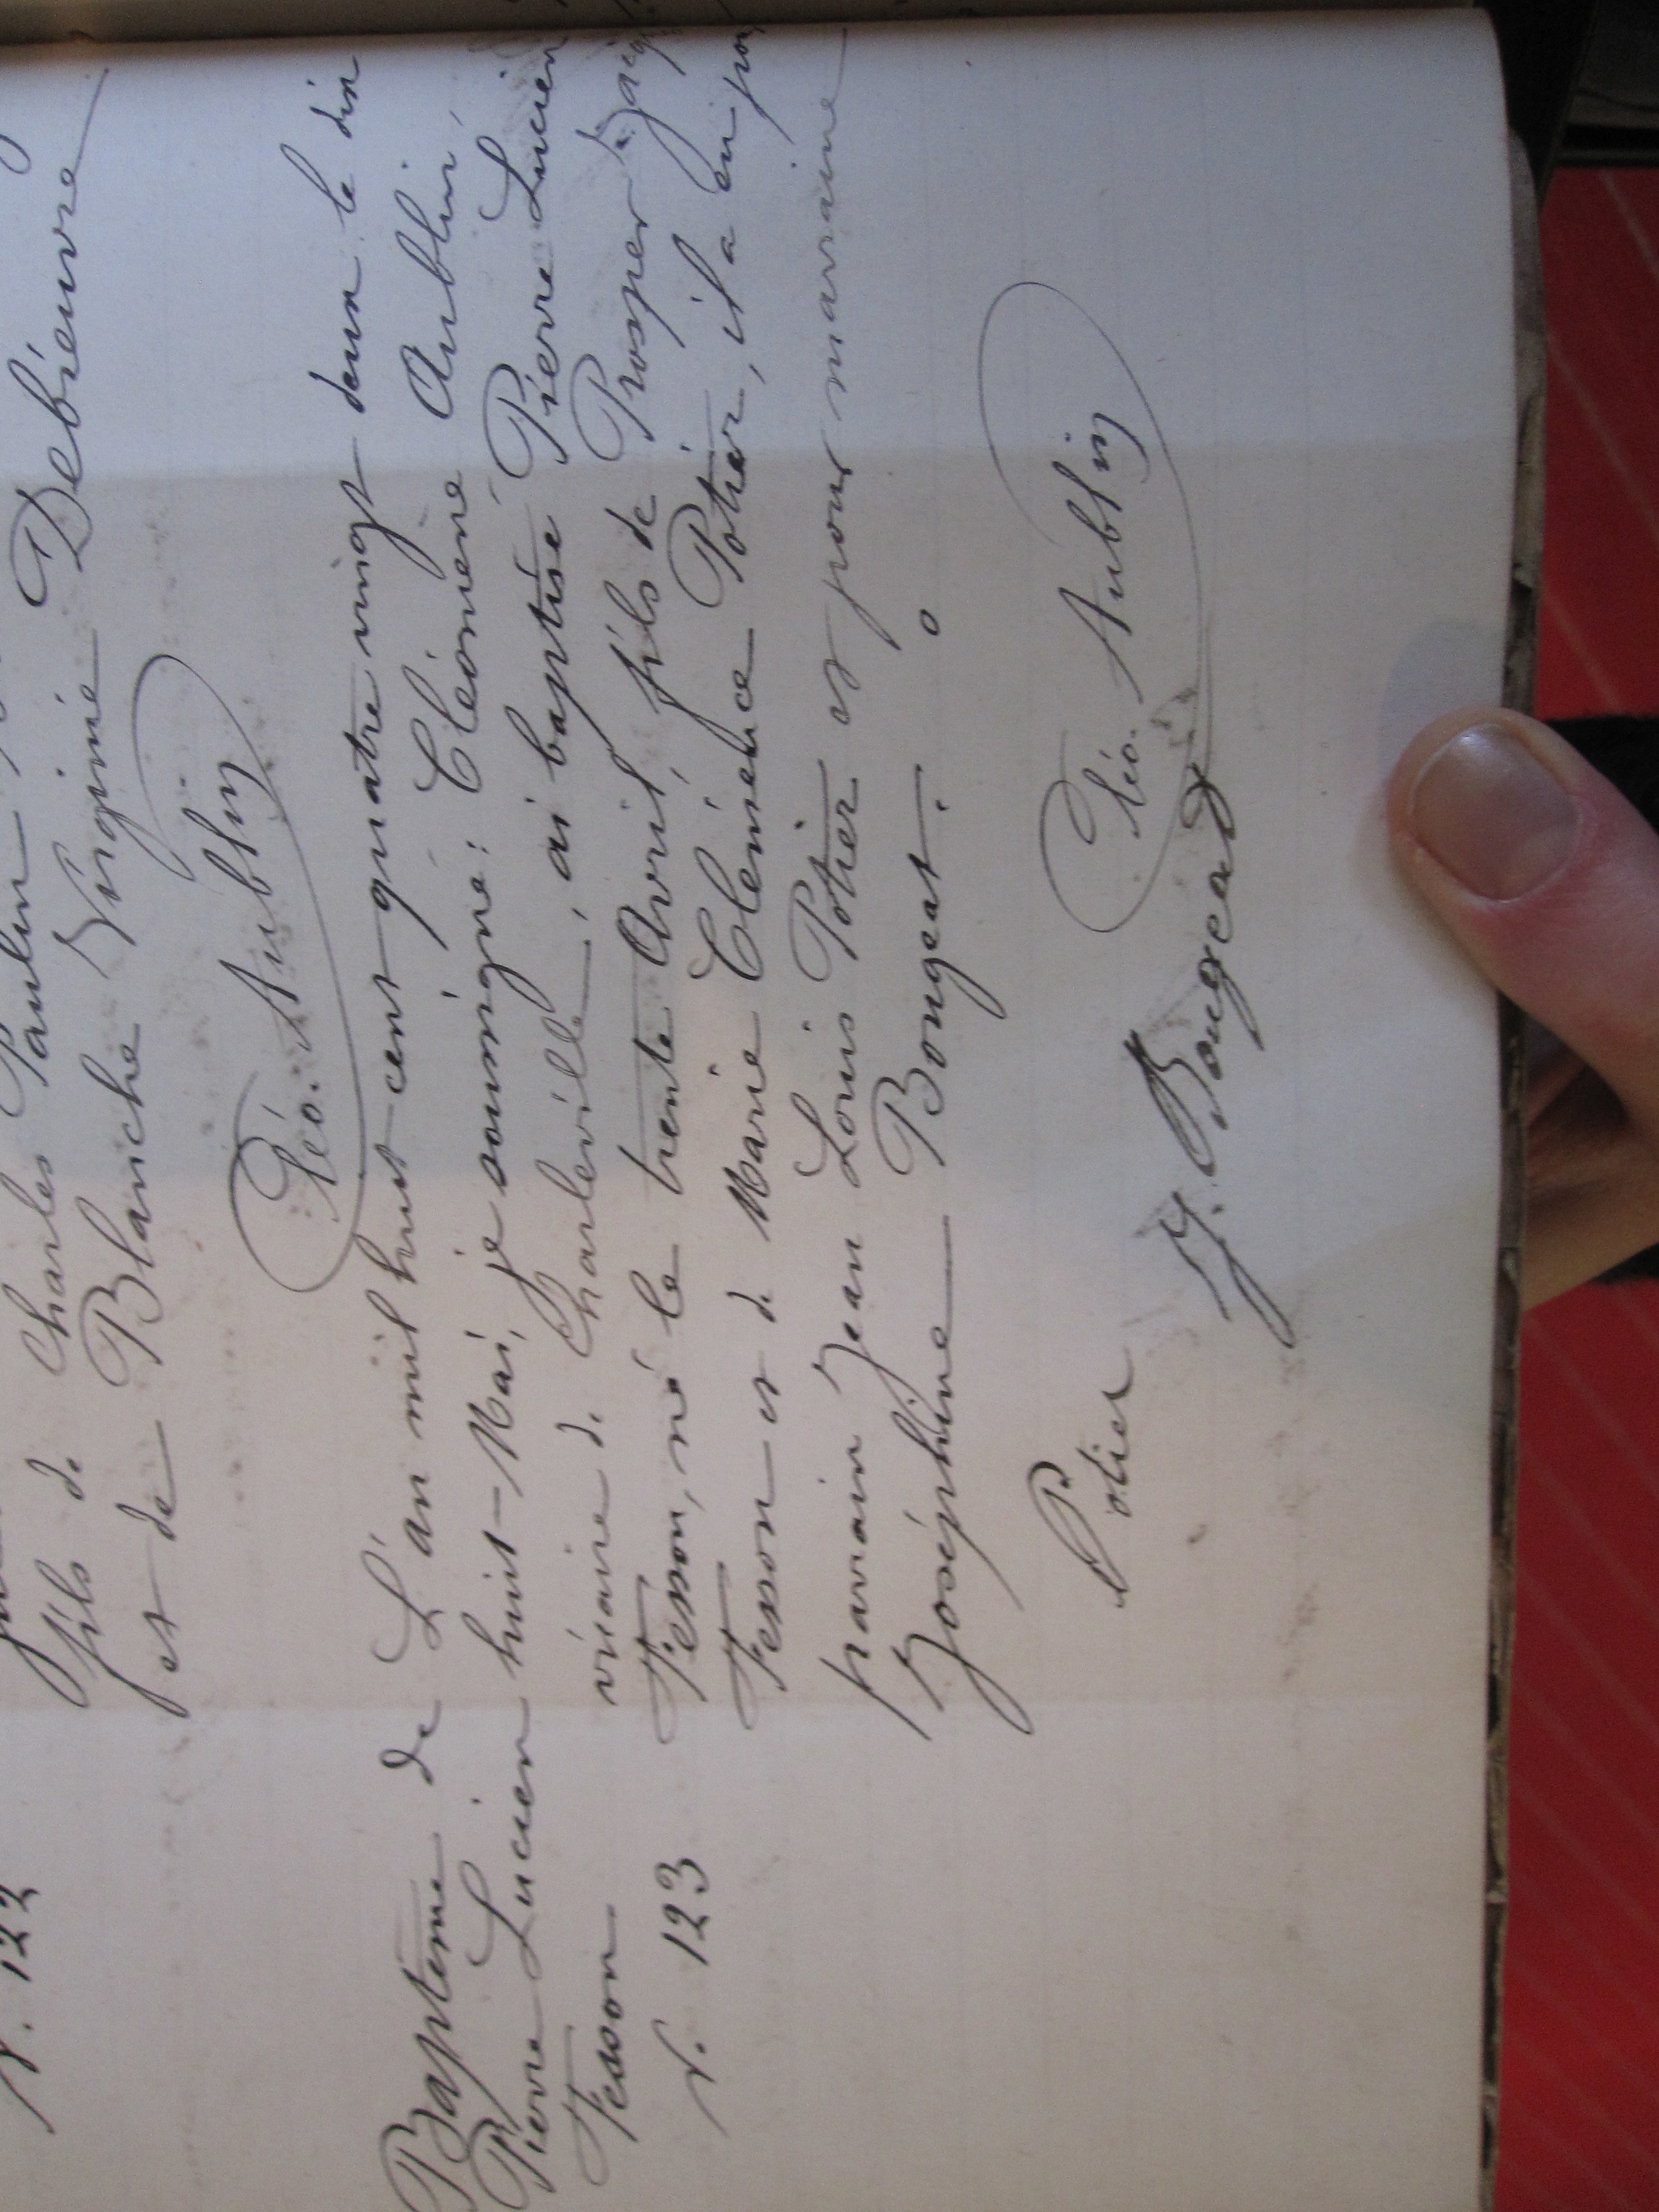 N. 122
fils de Charles Paulin
et de Blanche Virginie Debièuvre
Cléo. Aublin
Baptême de
Pierre Lucien
Fesson
N. 123
L'an mil huit cent quatre vingt deux le dix
huit Mai, je soussigné: Cléomène Aublin,
vicaire de Charleville, ai baptisé Pierre Lucien
Fesson, né le trente Avril, fils de Prosper
Fesson et de Marie Clémence Potier, il a eu pour
parrain Jean Louis Potier et pour marraine
Joséphine Bongeat.
Cléo. Aublin
Potier
J. Bongeat